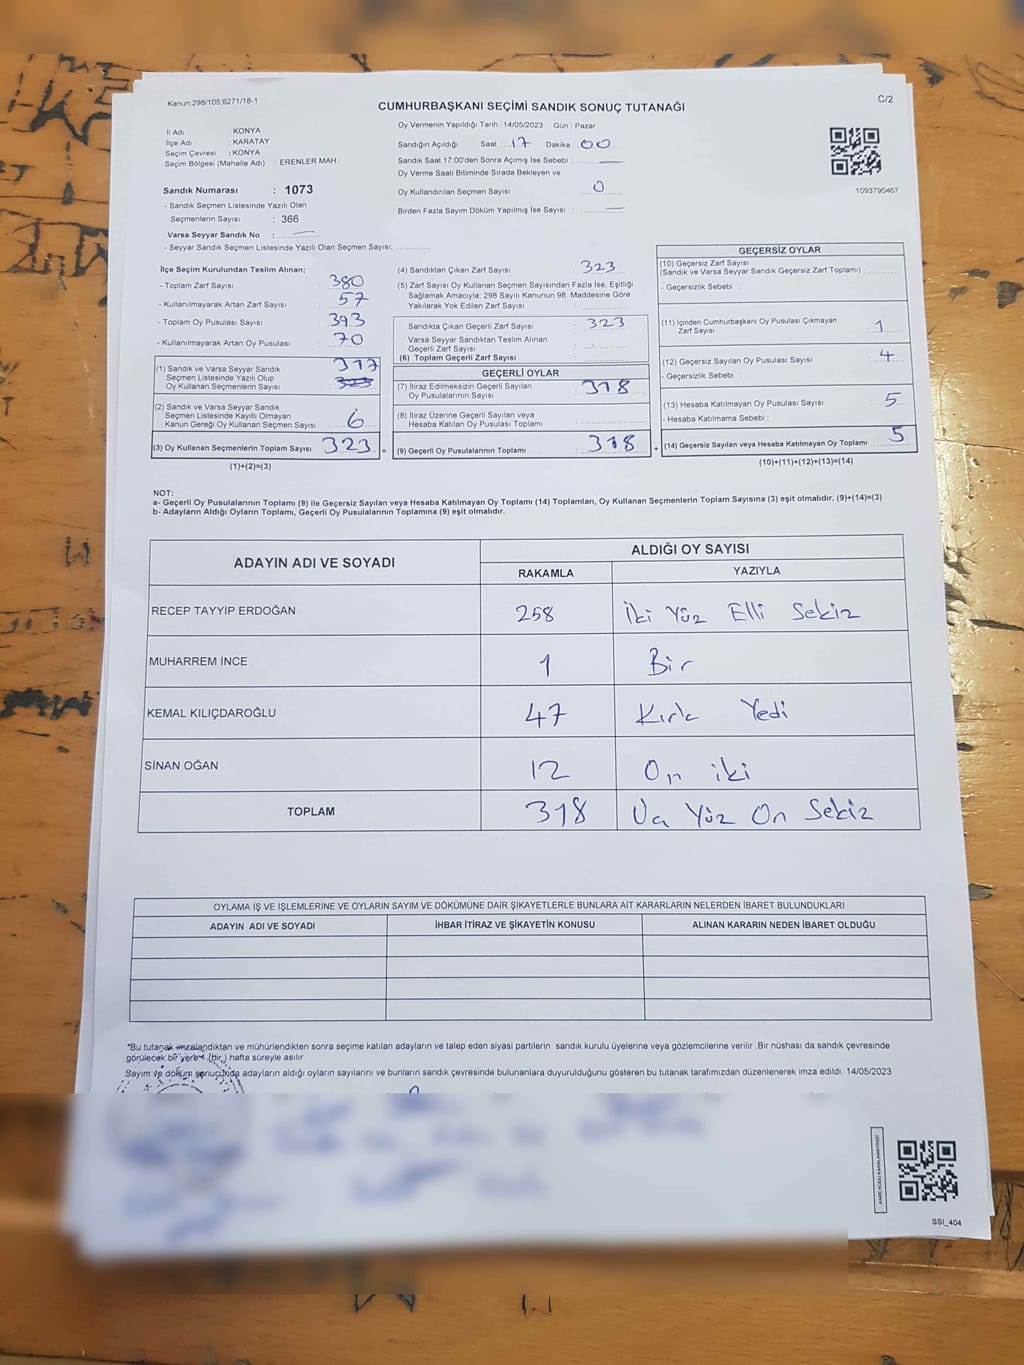 Kanun.298/105;6271/18-1
CUMHURBAŞKANI SEÇİMİ SANDIK SONUÇ TUTANAĞI
C/2
İl Adı : KONYA
İlçe Adı : KARATAY
Seçim Çevresi : KONYA
Seçim Bölgesi (Mahalle Adı) : ERENLER MAH.
Sandık Numarası : 1073
- Sandık Seçmen Listesinde Yazılı Olan
Seçmenlerin Sayısı : 366
Varsa Seyyar Sandık No : —
- Seyyar Sandık Seçmen Listesinde Yazılı Olan Seçmen Sayısı:
Oy Vermenin Yapıldığı Tarih : 14/05/2023 Gün : Pazar
Sandığın Açıldığı Saat : 17 Dakika : 00
Sandık Saat 17.00'den Sonra Açımış İse Sebebi : —
Oy Verme Saati Bitiminde Sırada Bekleyen ve
Oy Kullandırılan Seçmen Sayısı : 0
Birden Fazla Sayım Döküm Yapılmış İse Sayısı : —
1093790467
İlçe Seçim Kurulundan Teslim Alınan;
- Toplam Zarf Sayısı : 380
- Kullanılmayarak Artan Zarf Sayısı : 57
- Toplam Oy Pusulası Sayısı : 393
- Kullanılmayarak Artan Oy Pusulası : 70
(1) Sandık ve Varsa Seyyar Sandık 317
Seçmen Listesinde Yazılı Olup
Oy Kullanan Seçmenlerin Sayısı : 323
(2) Sandık ve Varsa Seyyar Sandık
Seçmen Listesinde Kayıtlı Olmayan
Kanun Gereği Oy Kullanan Seçmen Sayısı : 6
(3) Oy Kullanan Seçmenlerin Toplam Sayısı : 323 =
(1)+(2)=(3)
(4) Sandıktan Çıkan Zarf Sayısı : 323
(5) Zarf Sayısı Oy Kullanan Seçmen Sayısından Fazla İse, Eşitliği
Sağlamak Amacıyla; 298 Sayılı Kanunun 98. Maddesine Göre
Yakılarak Yok Edilen Zarf Sayısı :
Sandıkta Çıkan Geçerli Zarf Sayısı : 323
Varsa Seyyar Sandıktan Teslim Alınan
Geçerli Zarf Sayısı :
(6) Toplam Geçerli Zarf Sayısı :
GEÇERLİ OYLAR
(7) İtiraz Edilmeksizin Geçerli Sayılan
Oy Pusulalarının Sayısı : 318
(8) İtiraz Üzerine Geçerli Sayılan veya
Hesaba Katılan Oy Pusulası Toplamı :
(9) Geçerli Oy Pusulalarının Toplamı : 318 +
GEÇERSİZ OYLAR
(10) Geçersiz Zarf Sayısı
(Sandık ve Varsa Seyyar Sandık Geçersiz Zarf Toplamı) :
- Geçersizlik Sebebi :
(11) İçinden Cumhurbaşkanı Oy Pusulası Çıkmayan
Zarf Sayısı : 1
(12) Geçersiz Sayılan Oy Pusulası Sayısı : 4
- Geçersizlik Sebebi :
(13) Hesaba Katılmayan Oy Pusulası Sayısı : 5
- Hesaba Katılmama Sebebi :
(14) Geçersiz Sayılan veya Hesaba Katılmayan Oy Toplamı : 5
(10)+(11)+(12)+(13)=(14)
NOT:
a- Geçerli Oy Pusulalarının Toplamı (9) ile Geçersiz Sayılan veya Hesaba Katılmayan Oy Toplamı (14) Toplamları, Oy Kullanan Seçmenlerin Toplam Sayısına (3) eşit olmalıdır. (9)+(14)=(3)
b- Adayların Aldığı Oyların Toplamı, Geçerli Oy Pusulalarının Toplamına (9) eşit olmalıdır.
ADAYIN ADI VE SOYADI
ALDIĞI OY SAYISI
RAKAMLA YAZIYLA
RECEP TAYYİP ERDOĞAN 258 İki Yüz Elli Sekiz
MUHARREM İNCE 1 Bir
KEMAL KILIÇDAROĞLU 47 Kırk Yedi
SİNAN OĞAN 12 On iki
TOPLAM 318 Üç Yüz On Sekiz
OYLAMA İŞ VE İŞLEMLERİNE VE OYLARIN SAYIM VE DÖKÜMÜNE DAİR ŞİKAYETLERLE BUNLARA AİT KARARLARIN NELERDEN İBARET BULUNDUKLARI
ADAYIN ADI VE SOYADI İHBAR İTİRAZ VE ŞİKAYETİN KONUSU ALINAN KARARIN NEDEN İBARET OLDUĞU
*Bu tutanak imzalandıktan ve mühürlendikten sonra seçime katılan adayların ve talep eden siyasi partilerin sandık kurulu üyelerine veya gözlemcilerine verilir. Bir nüshası da sandık çevresinde
görülecek bir yere 1 (bir) hafta süreyle asılır.
Sayım ve döküm sonucunda adayların aldığı oyların sayılarını ve bunların sandık çevresinde bulunanlara duyurulduğunu gösteren bu tutanak tarafımızdan düzenlenerek imza edildi. 14/05/2023
KAREKODU KARALAMAYINIZ!
SSI_404